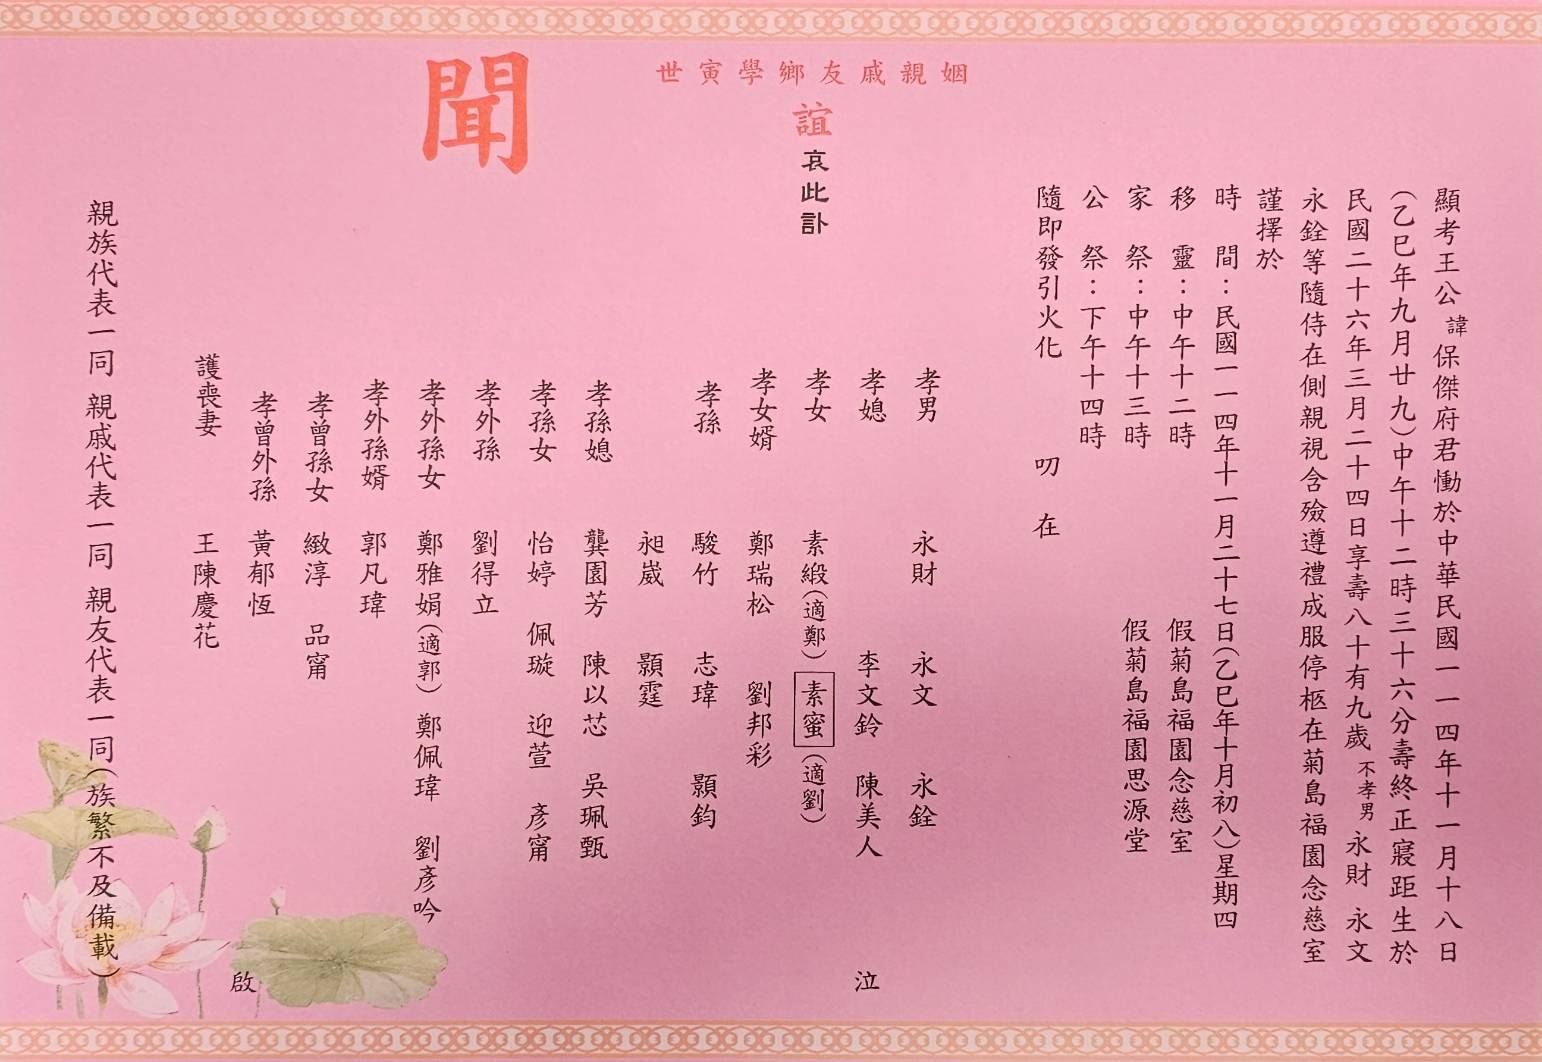 顯考王公諱保傑府君慟於中華民國一一四年十一月十八日
(乙巳年九月廿九)中午十二時三十六分壽終正寢距生於
民國二十六年三月二十四日享壽八十有九歲不孝男永財 永文
永銓等隨侍在側親視含殮遵禮成服停柩在菊島福園念慈室
謹擇於
時 間：民國一一四年十一月二十七日(乙巳年十月初八)星期四
移 靈：中午十二時 假菊島福園念慈室
家 祭：中午十三時 假菊島福園思源堂
公 祭：下午十四時
隨即發引火化 叨 在
姻親戚友鄉學寅世
誼
哀此訃
聞
孝男 永財 永文 永銓
孝媳 李文鈴 陳美人 泣
孝女 素緞(適鄭) 素蜜(適劉)
孝女婿 鄭瑞松 劉邦彩
孝孫 駿竹 志瑋 顥鈞
昶崴 顥霆
孝孫媳 龔園芳 陳以芯 吳珮甄
孝孫女 怡婷 佩璇 迎萱 彥甯
孝外孫 劉得立
孝外孫女 鄭雅娟(適郭) 鄭佩瑋 劉彥吟
孝外孫婿 郭凡瑋
孝曾孫女 緻淳 品甯
孝曾外孫 黃郁恆
護喪妻 王陳慶花 啟
親族代表一同 親戚代表一同 親友代表一同(族繁不及備載)